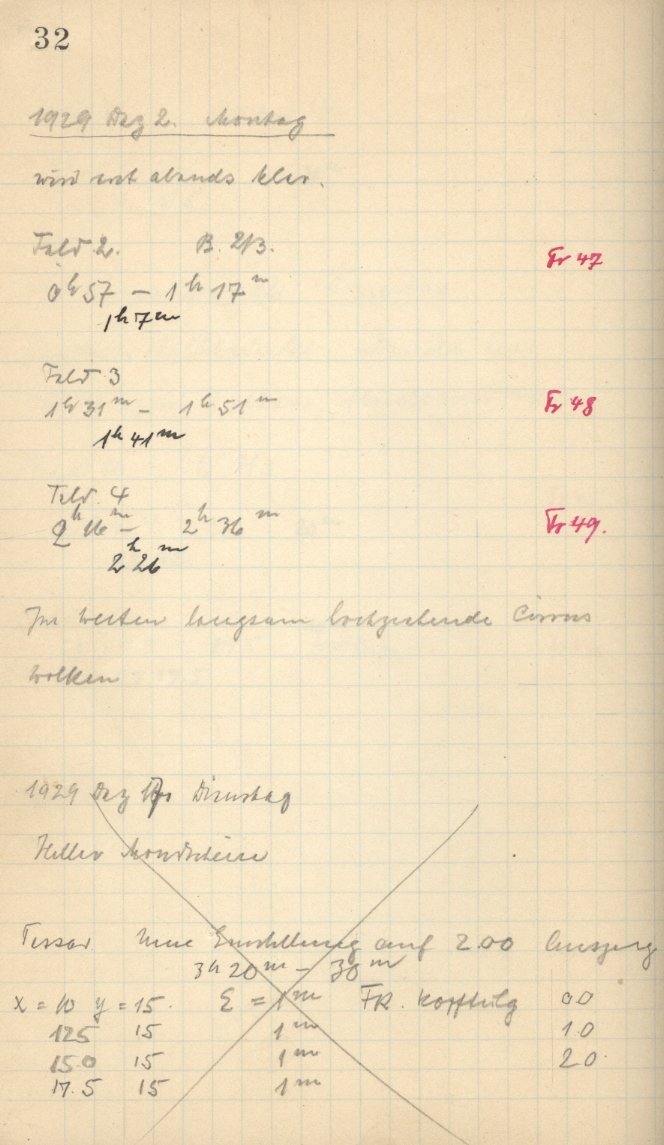 32
1929 Dez 2. Montag
wird erst abends klar.
Feld 2. B. 2/3. Fr 47
0h 57 – 1h 17m
1h 7m
Feld 3
1h 31m – 1h 51m Fr 48
1h 41m
Feld. 4
2h 16m – 2h 36m Fr 49.
2h 26m
Im Westen langsam hochziehende Cirrus
Wolken
1929 Dez Dienstag
Heller Mondschein
Tessar Neue Einstellung auf 2.00 Auszug
3h 20m – 30m
x = 10 y = 15. Σ = 1m FR. 00
125 15 1m 10
150 15 1m 20
17.5 15 1m